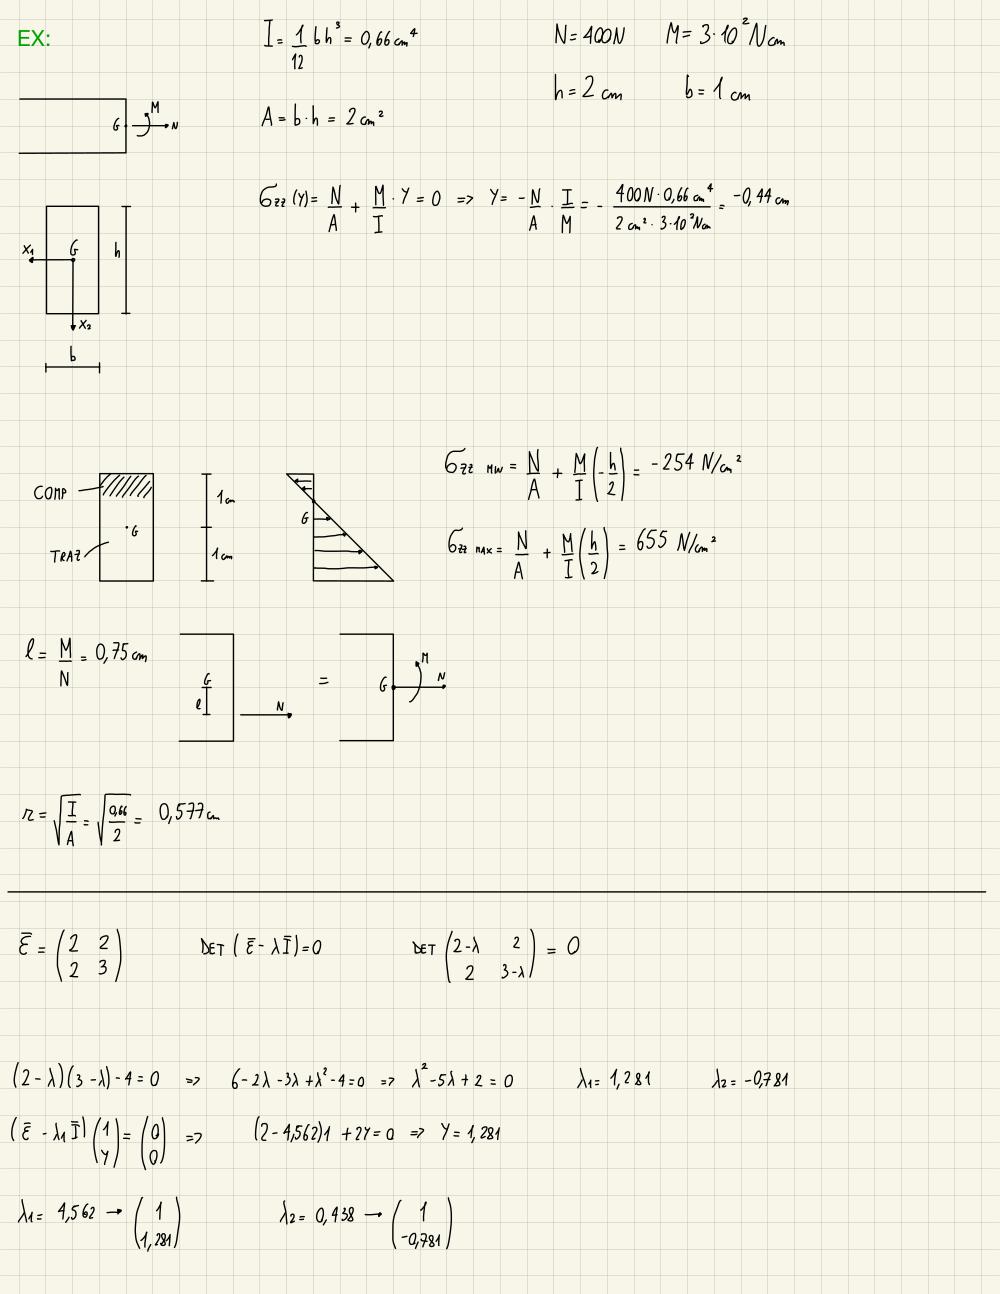 EX:
I = 1/12 b h³ = 0,66 cm⁴
N = 400N M = 3·10² Ncm
h = 2 cm b = 1 cm
A = b·h = 2 cm²
G M N
σzz (Y) = N/A + M/I · Y = 0 => Y = - N/A · I/M = - 400N·0,66 cm⁴ / 2 cm² · 3·10²Ncm = -0,44 cm
X₁ G h
X₂
b
σzz MIN = N/A + M/I (-h/2) = -254 N/cm²
COMP 1cm
G G
TRAZ 1cm
σzz MAX = N/A + M/I (h/2) = 655 N/cm²
l = M/N = 0,75 cm
G l N = G M N
r = √(I/A) = √(0,66/2) = 0,577 cm
ε̿ = (2 2; 2 3) DET (ε̿ - λI̿) = 0 DET (2-λ 2; 2 3-λ) = 0
(2 - λ)(3 - λ) - 4 = 0 => 6 - 2λ - 3λ + λ² - 4 = 0 => λ² - 5λ + 2 = 0 λ₁ = 1,281 λ₂ = -0,781
(ε̿ - λ₁ I̿) (1; Y) = (0; 0) => (2 - 4,562)1 + 2Y = 0 => Y = 1,281
λ₁ = 4,562 → (1; 1,281) λ₂ = 0,438 → (1; -0,781)